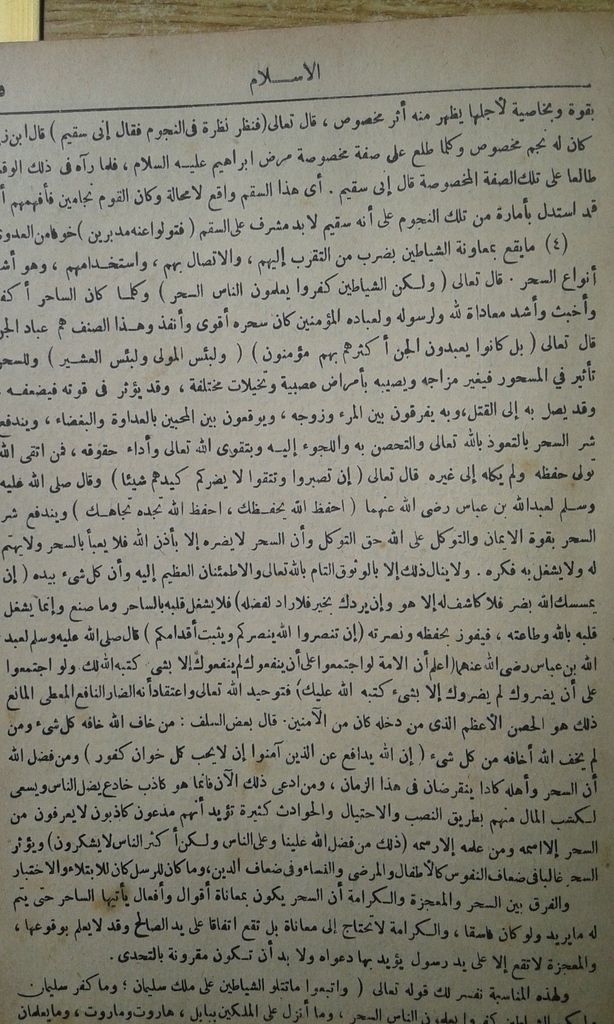 الاســـلام
بقوة وبخاصية لأجلها يظهر منه أثر مخصوص ، قال تعالى (فنظر نظرة فى النجوم فقال إنى سقيم ) قال ابن
كان له نجم مخصوص وكلما طلع على صفة مخصوصة مرض ابراهيم عليـه السلام ، فلما رآه فى ذلك
طالعا على تلك الصفة المخصوصة قال إنى سقيم . أى هذا السقم واقع لا محالة وكان القوم نجامين فأفهمهم
قد استدل بأمارة من تلك النجوم على أنه سقيم لا بد مشرف على السقم ( فتولوا عنه مدبرين ) خوفا من العدوى
(٤) مايقع بمعاونة الشياطين بضرب من التقرب إليهم ، والاتصال بهم ، واستخـدامهم ، وهو
أنواع السحر . قال تعالى ( ولـكن الشياطين كفروا يعلمون الناس السحر ) وكلمـا كان الساحر
وأخبث وأشد معاداة لله ولرسوله ولعباده المؤمنين كان سحره أقوى وأنفذ وهـذا الصنف هم عباد الجن
قال تعالى ( بل كانوا يعبدون الجن أكثرهم بهم مؤمنون ) ( ولبئس المولى ولبئس العشـير ) وللسحر
تأثير في المسحور فيغير مزاجه ويصيبه بأمراض عصبية وتخيلات مختلفة ، وقد يؤثر فى قوته فيضعفـه
وقد يصل به إلى القتل،وبه يفرقون بين المرء وزوجه ، ويوقعون بين المحبين بالعداوة والبغضاء ، ويندفع
شر السحر بالتعوذ بالله تعالى والتحصن به واللجوء إليـه وبتقوى الله تعالى وأداء حقوقه ، فمن اتقى الله
تولى حفظه ولم يكله إلى غيره قال تعالى ( إن تصبروا وتتقوا لا يضركم كيدهم شيئا ) وقال صلى الله عليه
وسـلم لعبدالله بن عباس رضى الله عنهما ( احفظ الله يحفـظك ، احفظ الله تجده تجاهـك ) ويندفع شر
السحر بقوة الايمان والتوكل على الله حق التوكل وأن السحر لايضره إلا بأذن الله فلا يعبأ بالسحر ولا يهتم
له ولا يشغل به فكره . ولاينال ذلك إلا بالوثوق التام بالله تعالى والاطمئنان العظيم إليه وأن كل شىء بيده ( إن
يمسسك الله بضر فلا كاشف له إلا هو وإن يردك بخير فلا راد لفضله) فلا يشغل قلبه بالساحر وما صنع وإنما يشغل
قلبه بالله وطاعته ، فيفوز بحفظه ونصرته (إن تنصروا الله ينصركم ويثبت أقدامكم ) قال صلى الله عليه وسلم لعبد
الله بن عباس رضى الله عنهما ( اعلم أن الامة لو اجتمعوا على أن ينفعوك لم ينفعوك إلا بشى كتبه الله لك ولو اجتمعوا
على أن يضروك لم يضروك إلا بشىء كتبه الله عليك) فتوحيد الله تعالى واعتقاد أنه الضار النافع المعطى المانع
ذلك هو الحصن الأعظم الذى من دخله كان من الآمنين. قال بعض السلف : من خاف الله خافه كل شىء ومن
لم يخف الله أخافه من كل شىء ( إن الله يدافع عن الذين آمنوا إن لا يحب كل خوان كفور ) ومن فضل الله
أن السحر وأهله كادا ينقرضان فى هذا الزمان ، ومن ادعى ذلك الآن فانما هو كاذب خادع يضل الناس ويسعى
لكسب المال منهم بطريق النصب والاحتيال والحوادث كثيرة تؤيد أنهم مدعون كاذبون لايعرفون من
السحر إلا اسمه ومن علمه إلا رسمه (ذلك من فضل الله علينا وعلى الناس ولـكن أكثر الناس لايشكرون) ويؤثر
السحر غالبا فى ضعاف النفوس كالأطفال والمرضى والنساء وفى ضعاف الدين، وما كان للرسل كان للابتلاء والاختبار
والفرق بين السحر والمعجزة والـكرامة أن السحر يكون بمعاناة أقوال وأفعال يأتيها الساحر حتى يتم
له مايريد ولو كان فاسقا ، والـكرامة لاتحتاج إلى معاناة بل تقع اتفاقا على يد الصالح وقد لايعلم بوقوعها ،
والمعجزة لاتقع إلا على يد رسول يؤيد بها دعواه ولا بد أن تـكون مقرونة بالتحدى .
ولهذه المناسبة نفسر لك قوله تعالى ( واتبعوا ماتتلو الشياطين على ملك سليمان ؛ وما كفر سليمان
ولـكن الشياطين كفروا يعلمون الناس السحر ، وما أنزل على الملكين ببابل ، هاروت وماروت ، وما يعلمان